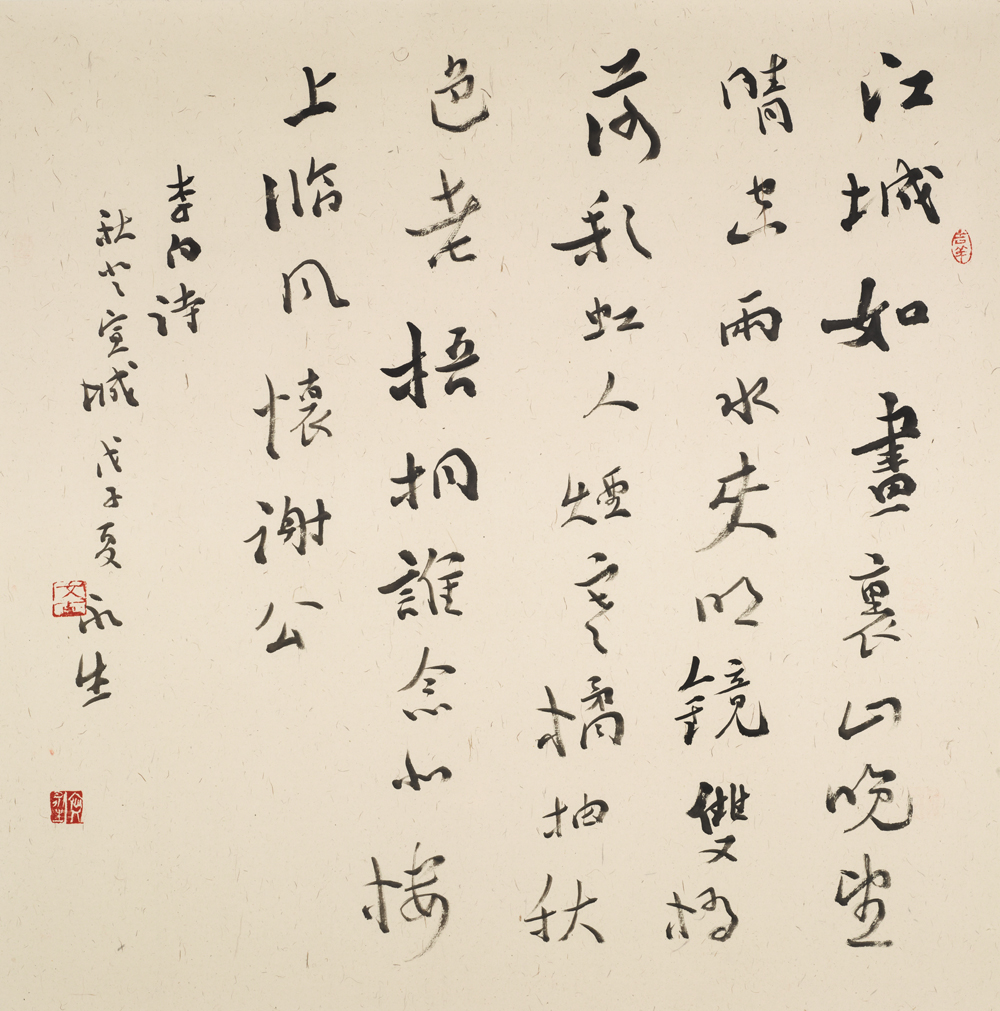 吉羊
江城如畫裏山晚望
晴空兩水夾明鏡雙橋
落彩虹人煙寒橘柚秋
色老梧桐誰念北樓
上臨風懷謝公
李白詩
秋登宣城 戊子夏 永生